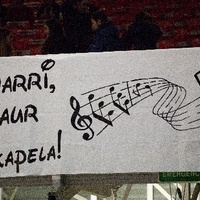 JARRI,
AUR
KAPELA!
EMERGENC